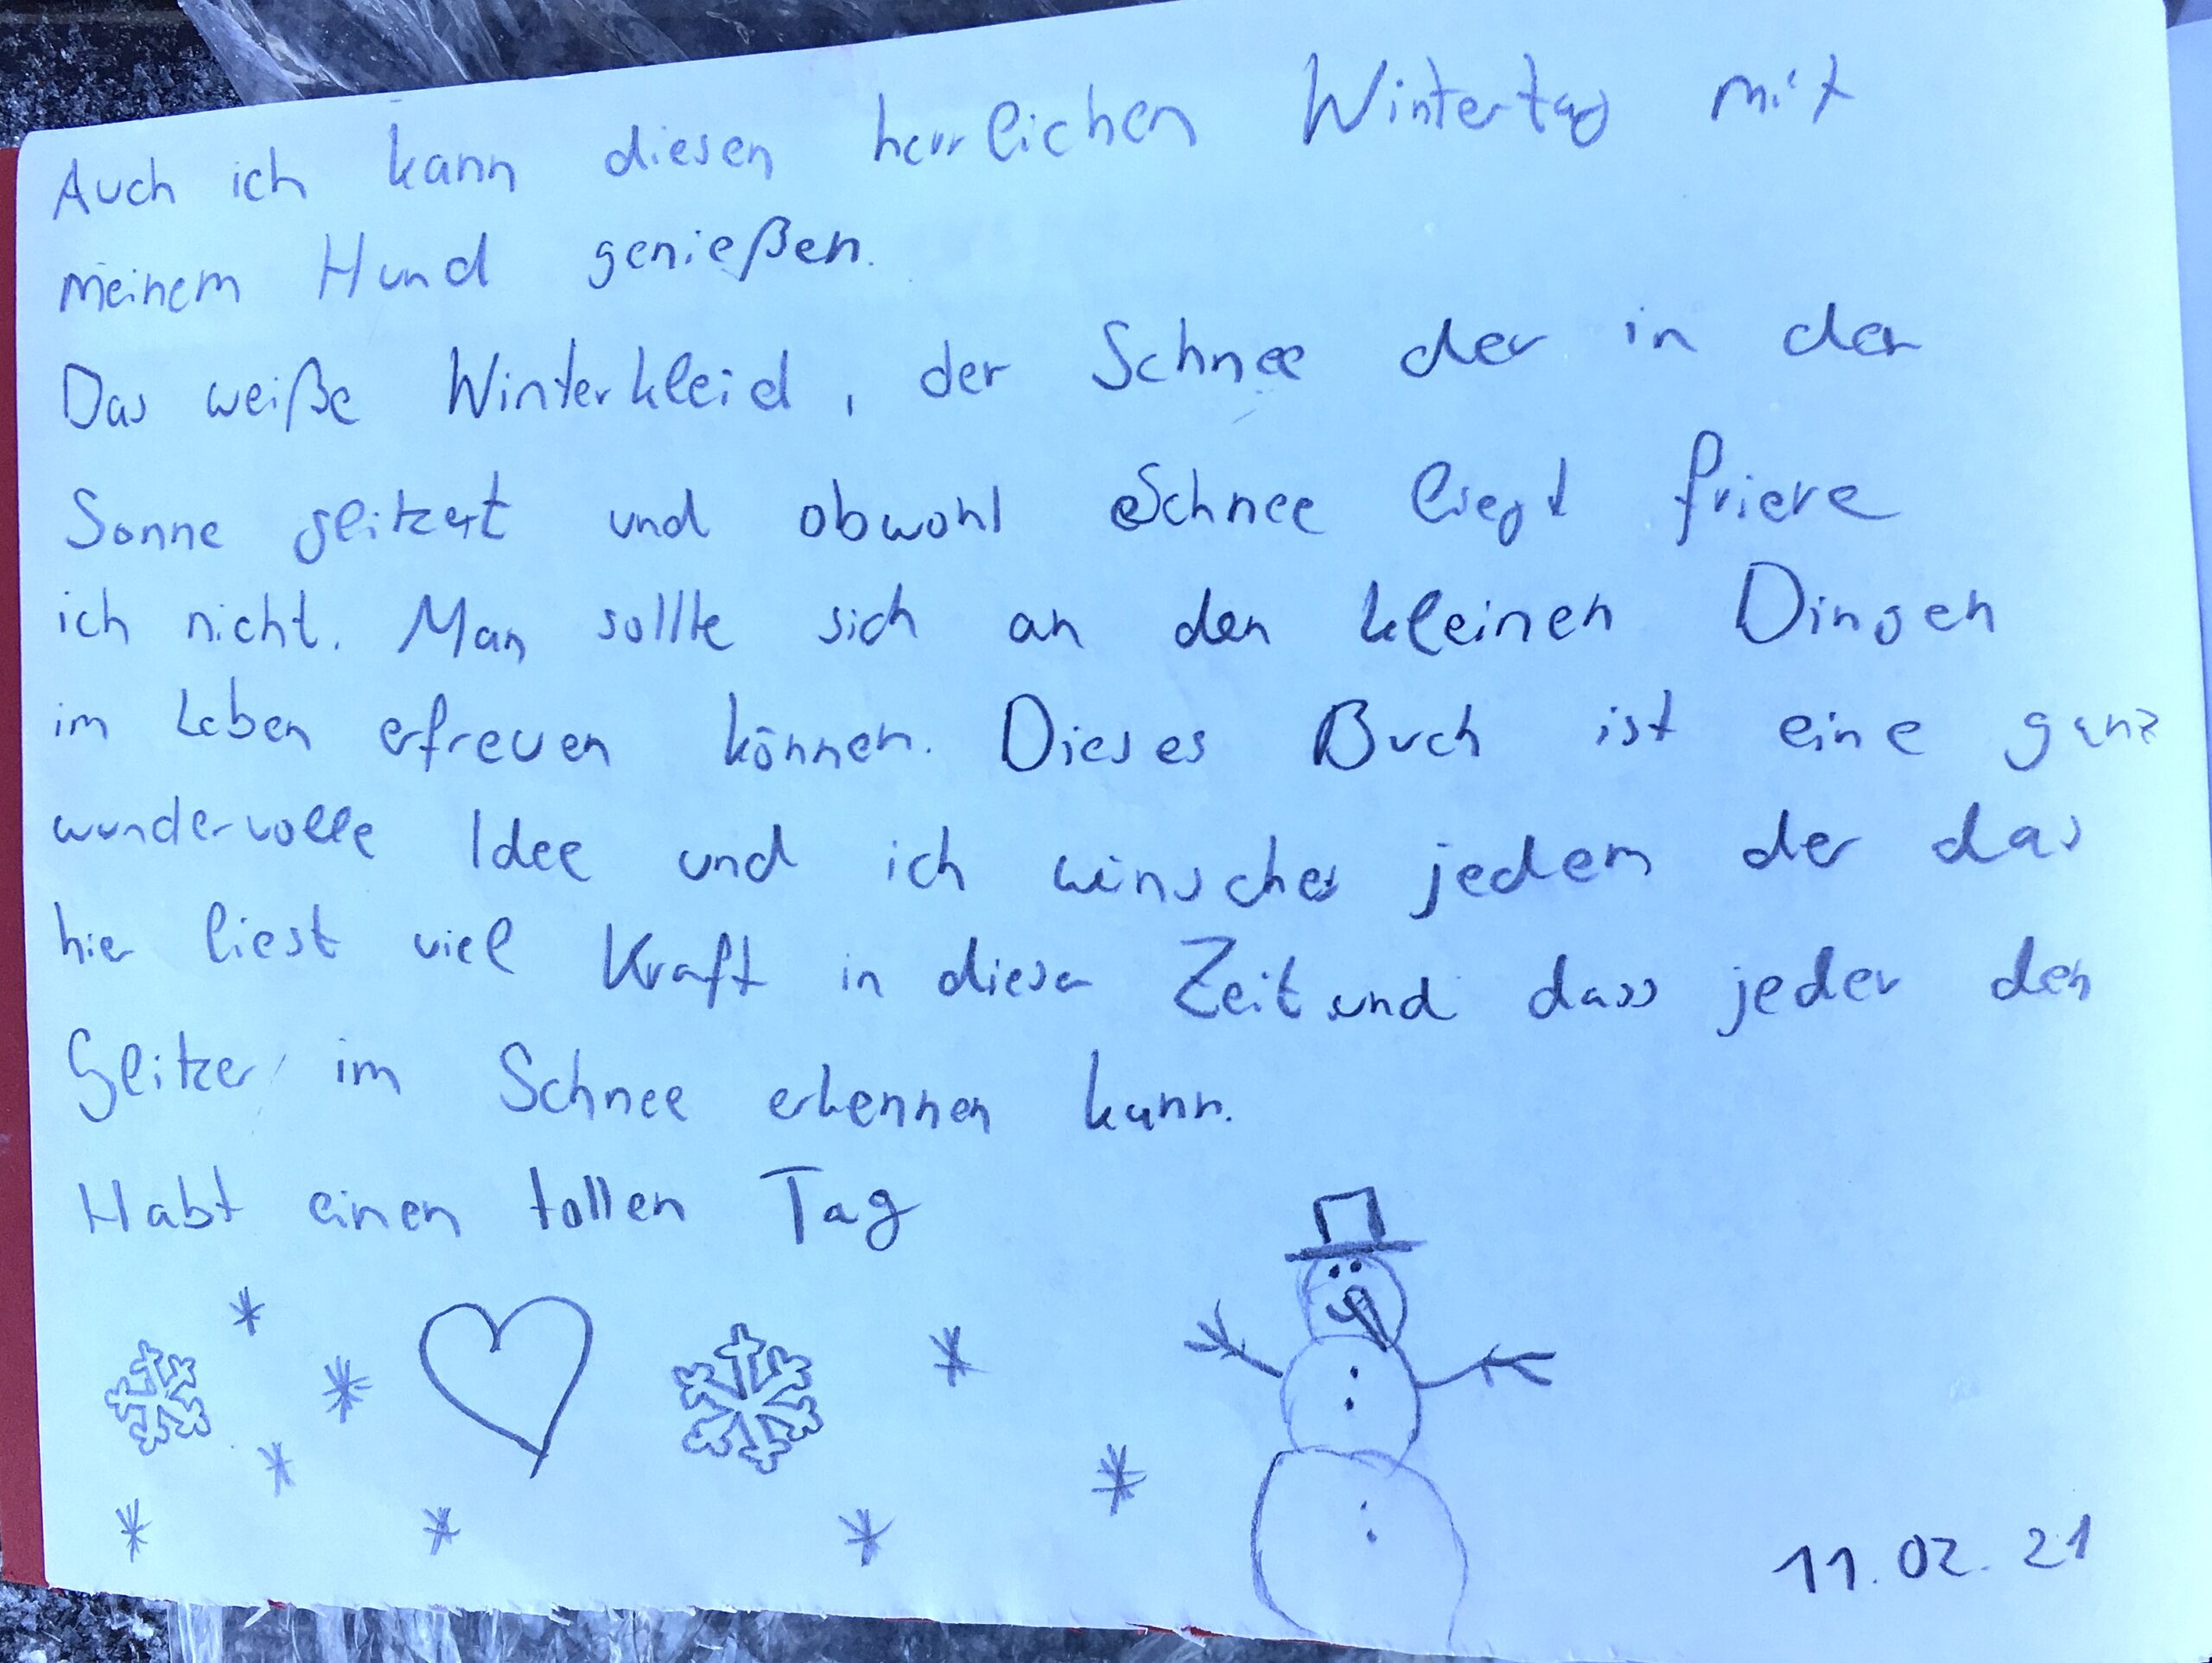 Auch ich kann diesen herrlichen Wintertag mit
meinem Hund genießen.
Das weiße Winterkleid, der Schnee der in der
Sonne glitzert und obwohl Schnee liegt friere
ich nicht. Man sollte sich an den kleinen Dingen
im Leben erfreuen können. Dieses Buch ist eine ganz
wundervolle Idee und ich wünsche jedem der das
hier liest viel Kraft in dieser Zeit und dass jeder den
Glitzer im Schnee erkennen kann.
Habt einen tollen Tag
11.02.21